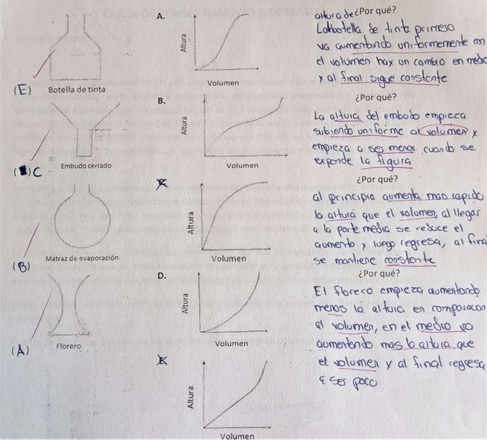 A.
Altura
Volumen
(E)
Botella de tinta
altura de ¿Por qué?
La botella de tinta primero
va aumentando uniformemente en
el volumen hay un cambio en medio
y al final sigue constante
B.
Altura
Volumen
C
Embudo cerrado
¿Por qué?
La altura del embodo empieza
subiendo uniforme al volumen y
empieza a ser menor cuando se
exponde la figura
Altura
Volumen
(B)
Matraz de evaporación
¿Por qué?
al principio aumenta mas rapido
la altura que el volumen, al llegar
a la parte media se reduce el
aumento y luego regresa, al final
se mantiene constante
D.
Altura
Volumen
(A)
Florero
¿Por qué?
El floreco empieza aumentando
menos la altura en comparacion
al volumen, en el medio va
aumentando mas la altura que
el volumen y al final regresa
a ser poco
Altura
Volumen